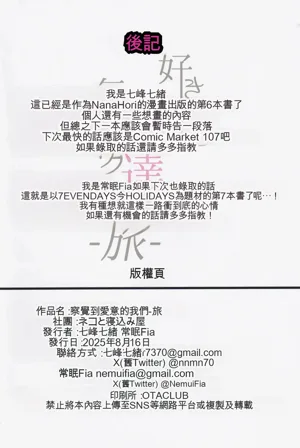 後記
我是七峰七緒
這已經是作為NanaHori的漫畫出版的第6本書了
個人還有一些想畫的內容
但總之下一本應該會暫時告一段落
下次最快的話應該是Comic Market 107吧
如果錄取的話還請多多指教
我是常眠Fia如果下次也錄取的話
這就是以7EVENDAYS今HOLIDAYS為題材的第7本書了呢…！
我有種想就這樣一路衝到底的心情
如果還有機會的話請多多指教！
-旅-
版權頁
作品名 :察覺到愛意的我們-旅
社團 :ネコと寝込み屋
發行者 :七峰七緒 常眠Fia
發行日 :2025年8月16日
聯絡方式 :七峰七緒r7370@gmail.com
X(舊Twitter) @nnmn70
常眠Fia nemuifia@gmail.com
X(舊Twitter) @NemuiFia
印刷所 :OTACLUB
禁止將本內容上傳至SNS等網路平台或複製及轉載